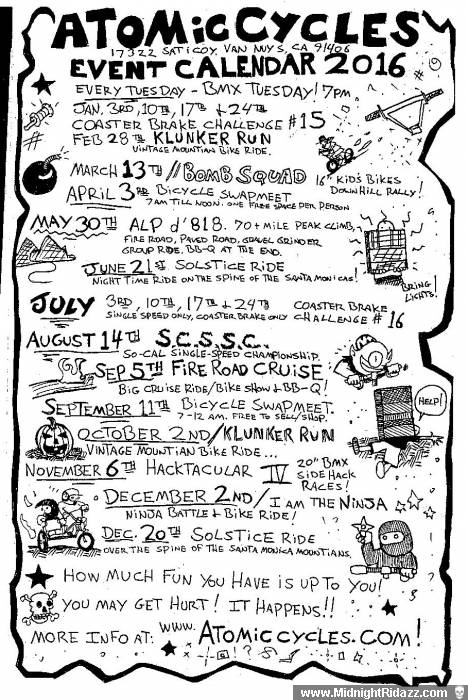 ATOMiC CYCLES
17322 SATICOY, VAN NUYS, CA 91406
EVENT CALENDAR 2016
EVERY TUESDAY - BMX TUESDAY! 7PM,
JAN. 3RD, 10TH, 17TH & 24TH
COASTER BRAKE CHALLENGE #15
FEB 28TH KLUNKER RUN
VINTAGE MOUNTIAN BIKE RIDE.
MARCH 13TH // BOMB SQUAD 16" KID'S BIKES
DOWNHILL RALLY!
APRIL 3RD BICYCLE SWAPMEET
7AM TILL NOON. ONE FREE SPACE PER PERSON
MAY 30TH ALP d'818. 70+ MILE PEAK CLIMB,
FIRE ROAD, PAVED ROAD, GRAVEL GRINDER
GROUP RIDE. BB-Q AT THE END.
JUNE 21ST SOLSTICE RIDE
NIGHT TIME RIDE ON THE SPINE OF THE SANTA MONICAS!
BRING LIGHTS!
JULY 3RD, 10TH, 17TH & 24TH COASTER BRAKE
SINGLE SPEED ONLY, COASTER BRAKE ONLY CHALLENGE #16
AUGUST 14TH S.C.S.S.C.
SO-CAL SINGLE-SPEED CHAMPIONSHIP.
SEP 5TH FIRE ROAD CRUISE
BIG CRUISE RIDE/BIKE SHOW & BB-Q!
HELP!
SEPTEMBER 11TH BICYCLE SWAPMEET
7-12 AM. FREE TO SELL/SHOP.
OCTOBER 2ND/KLUNKER RUN
VINTAGE MOUNTIAN BIKE RIDE...
NOVEMBER 6TH HACKTACULAR IV 20" BMX
SIDE HACK
RACES!
DECEMBER 2ND/I AM THE NINJA
NINJA BATTLE & BIKE RIDE!
DEC. 20TH SOLSTICE RIDE
OVER THE SPINE OF THE SANTA MONICA MOUNTIANS.
HOW MUCH FUN YOU HAVE IS UP TO YOU!
YOU MAY GET HURT! IT HAPPENS!!
MORE INFO AT: WWW. ATOMIC CYCLES.COM!
www.MidnightRidazz.com